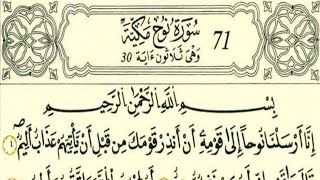 سُورَةُ نُوحٍ مَكِّيَّة 71
وَهْىَ ثَلَاثُونَ ءَايَة 30
بِسْمِ اللَّهِ الرَّحْمَٰنِ الرَّحِيمِ
إِنَّا أَرْسَلْنَا نُوحًا إِلَىٰ قَوْمِهِ أَنْ أَنذِرْ قَوْمَكَ مِن قَبْلِ أَنْ يَأْتِيَهُمْ عَذَابٌ أَلِيمٌ